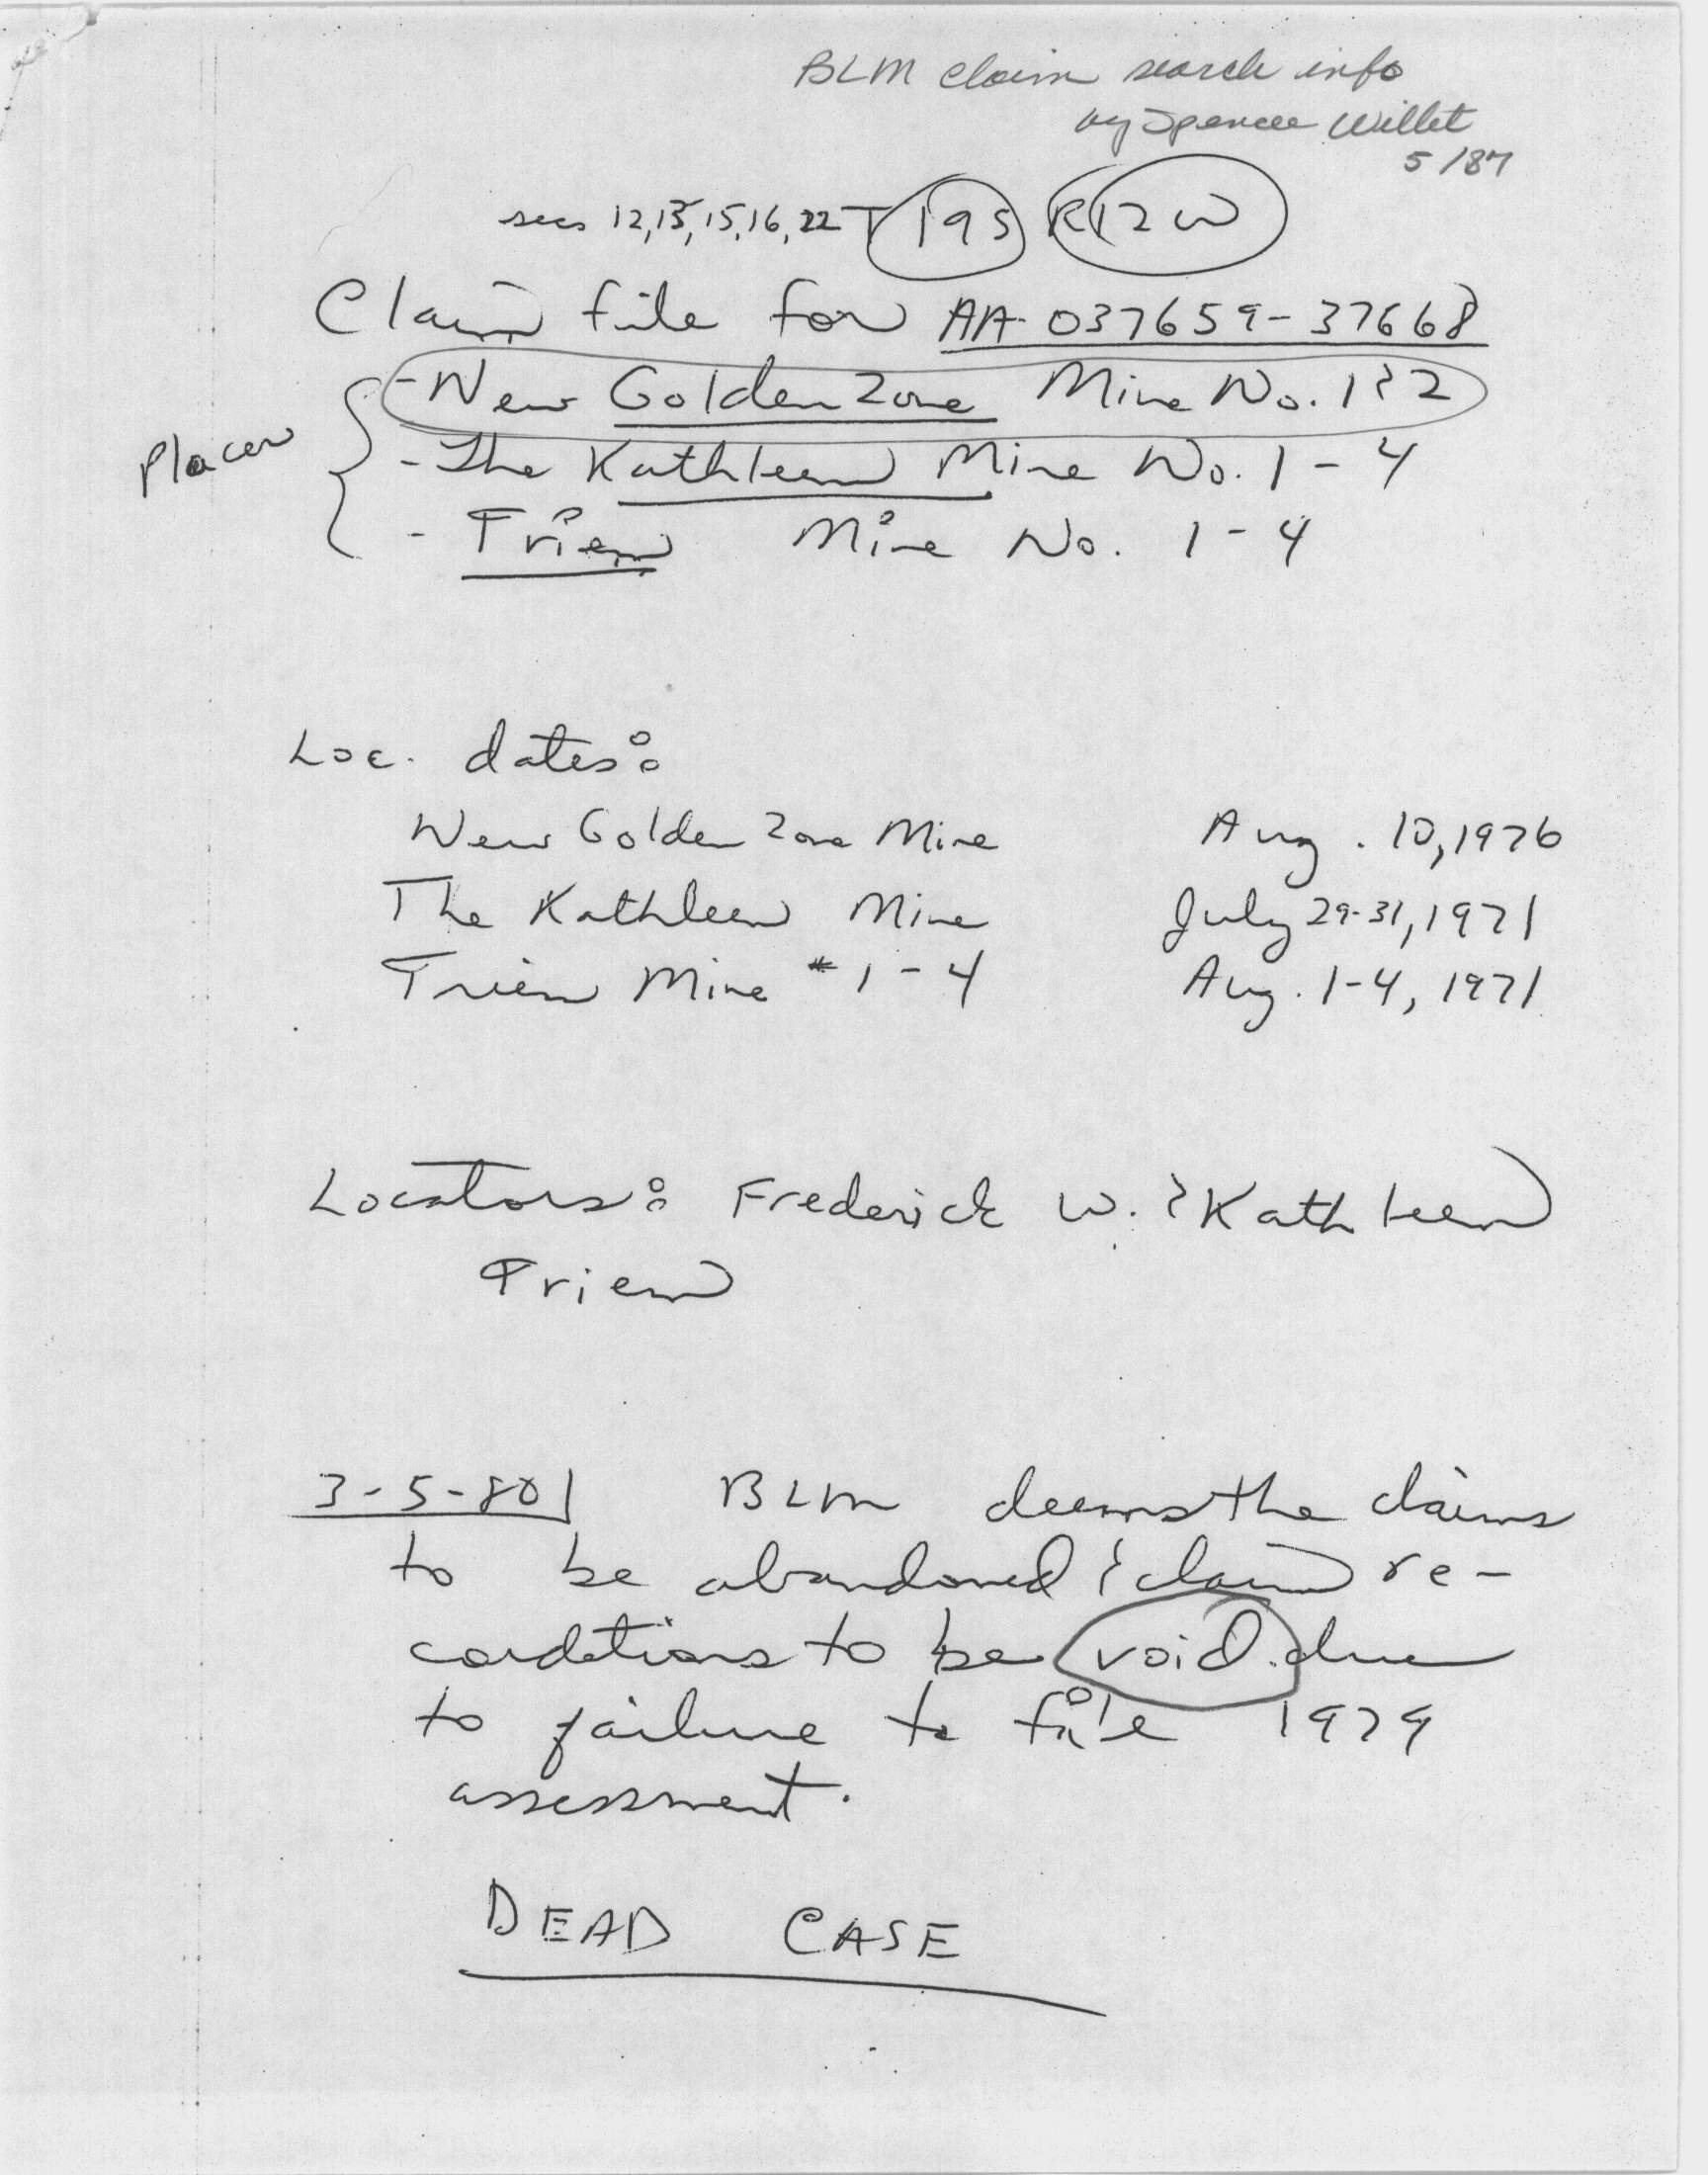 BLM claim search info
by Spencer Willet
5/87
secs 12,13,15,16,22 T 19S R12W
Claim file for AA-037659-37668
Placer
- New Golden Zone Mine No. 1 & 2
- The Kathleen Mine No. 1-4
- Trien Mine No. 1-4
Loc. dates:
New Golden Zone Mine Aug. 10, 1976
The Kathleen Mine July 29-31, 1971
Trien Mine #1-4 Aug. 1-4, 1971
Locators: Frederick W. & Kathleen
Trien
3-5-80 BLM deems the claims
to be abandoned & claim re-
cordations to be void due
to failure to file 1979
assessment.
DEAD CASE